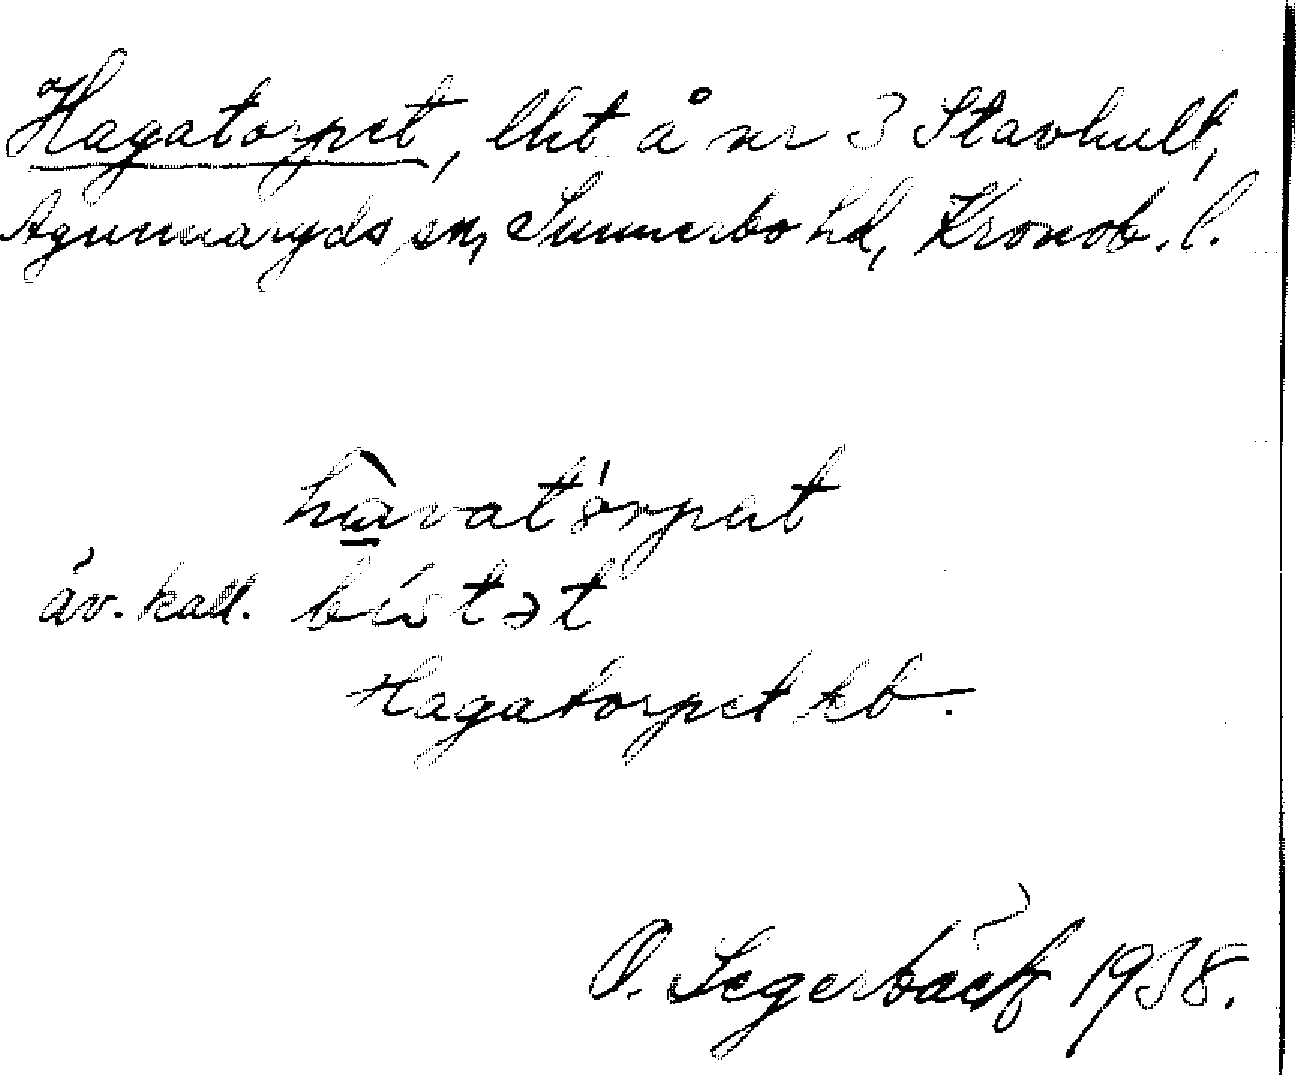 Hagatorpet, lht å nr 3 Stavhult,
Agunnaryds sn, Sunnerbo hd, Kronob. l.
áv. kall. bístət
Hagatorpet kb.
O. Segerbäck 1938.